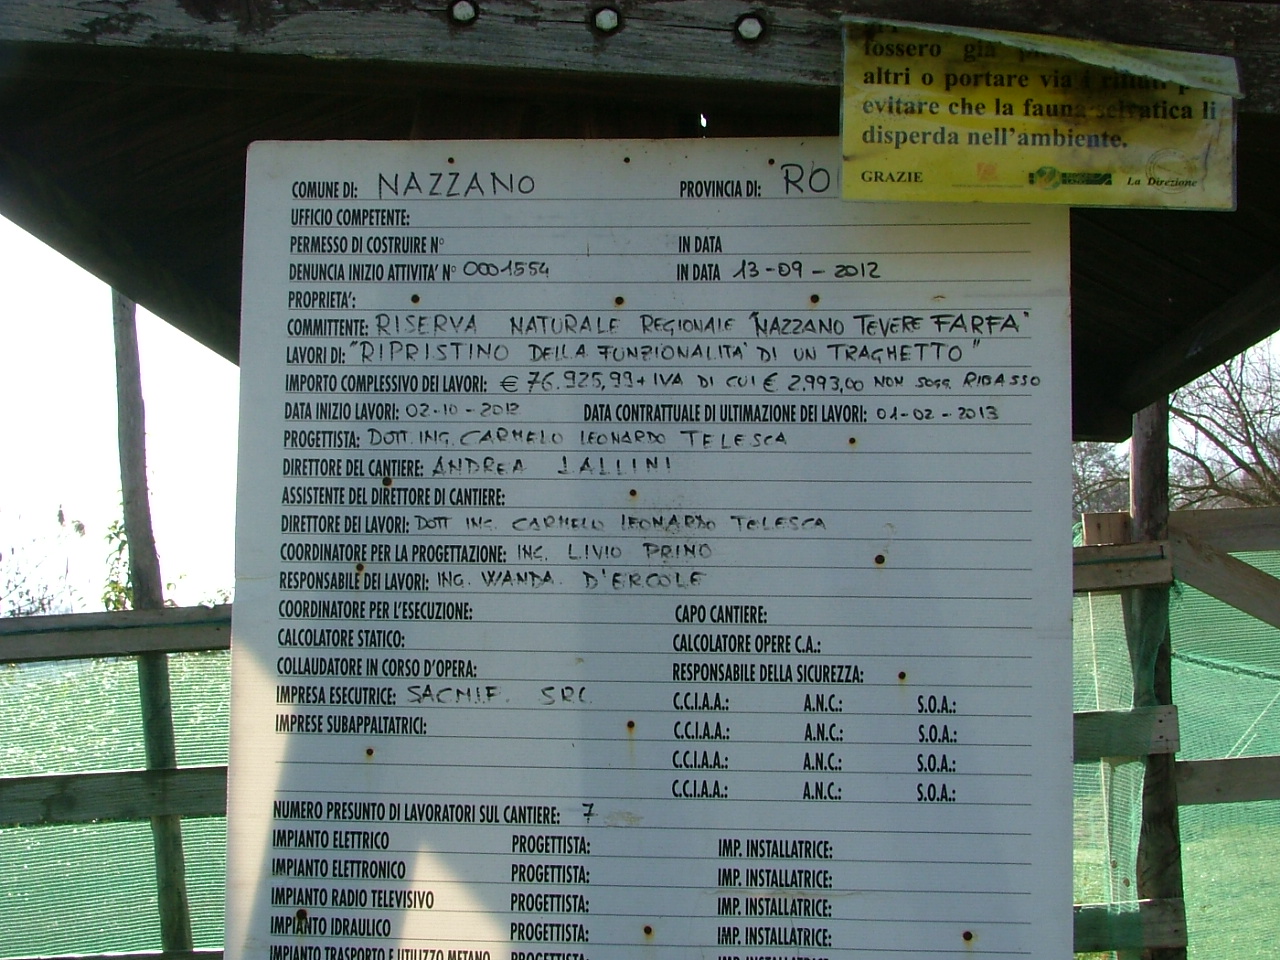 fossero già
altri o portare via i rifiuti p
evitare che la fauna selvatica li
disperda nell'ambiente.
GRAZIE
La Direzione
COMUNE DI: NAZZANO PROVINCIA DI: RO
UFFICIO COMPETENTE:
PERMESSO DI COSTRUIRE N° IN DATA
DENUNCIA INIZIO ATTIVITA' N° 0001554 IN DATA 13-09-2012
PROPRIETA':
COMMITTENTE: RISERVA NATURALE REGIONALE "NAZZANO TEVERE FARFA"
LAVORI DI: "RIPRISTINO DELLA FUNZIONALITA' DI UN TRAGHETTO"
IMPORTO COMPLESSIVO DEI LAVORI: € 76.925,99+IVA DI CUI € 2.993,00 NON SOGG. RIBASSO
DATA INIZIO LAVORI: 02-10-2012 DATA CONTRATTUALE DI ULTIMAZIONE DEI LAVORI: 01-02-2013
PROGETTISTA: DOTT. ING. CARMELO LEONARDO TELESCA
DIRETTORE DEL CANTIERE: ANDREA LALLINI
ASSISTENTE DEL DIRETTORE DI CANTIERE:
DIRETTORE DEI LAVORI: DOTT ING. CARMELO LEONARDO TELESCA
COORDINATORE PER LA PROGETTAZIONE: ING. LIVIO PRINO
RESPONSABILE DEI LAVORI: ING. WANDA D'ERCOLE
COORDINATORE PER L'ESECUZIONE: CAPO CANTIERE:
CALCOLATORE STATICO: CALCOLATORE OPERE C.A.:
COLLAUDATORE IN CORSO D'OPERA: RESPONSABILE DELLA SICUREZZA:
IMPRESA ESECUTRICE: C.C.I.A.A.: A.N.C.: S.O.A.:
IMPRESE SUBAPPALTATRICI: C.C.I.A.A.: A.N.C.: S.O.A.:
C.C.I.A.A.: A.N.C.: S.O.A.:
C.C.I.A.A.: A.N.C.: S.O.A.:
NUMERO PRESUNTO DI LAVORATORI SUL CANTIERE: 7
IMPIANTO ELETTRICO PROGETTISTA: IMP. INSTALLATRICE:
IMPIANTO ELETTRONICO PROGETTISTA: IMP. INSTALLATRICE:
IMPIANTO RADIO TELEVISIVO PROGETTISTA: IMP. INSTALLATRICE:
IMPIANTO IDRAULICO PROGETTISTA: IMP. INSTALLATRICE:
IMPIANTO TRASPORTO E UTILIZZO METANO PROGETTISTA: IMP. INSTALLATRICE: